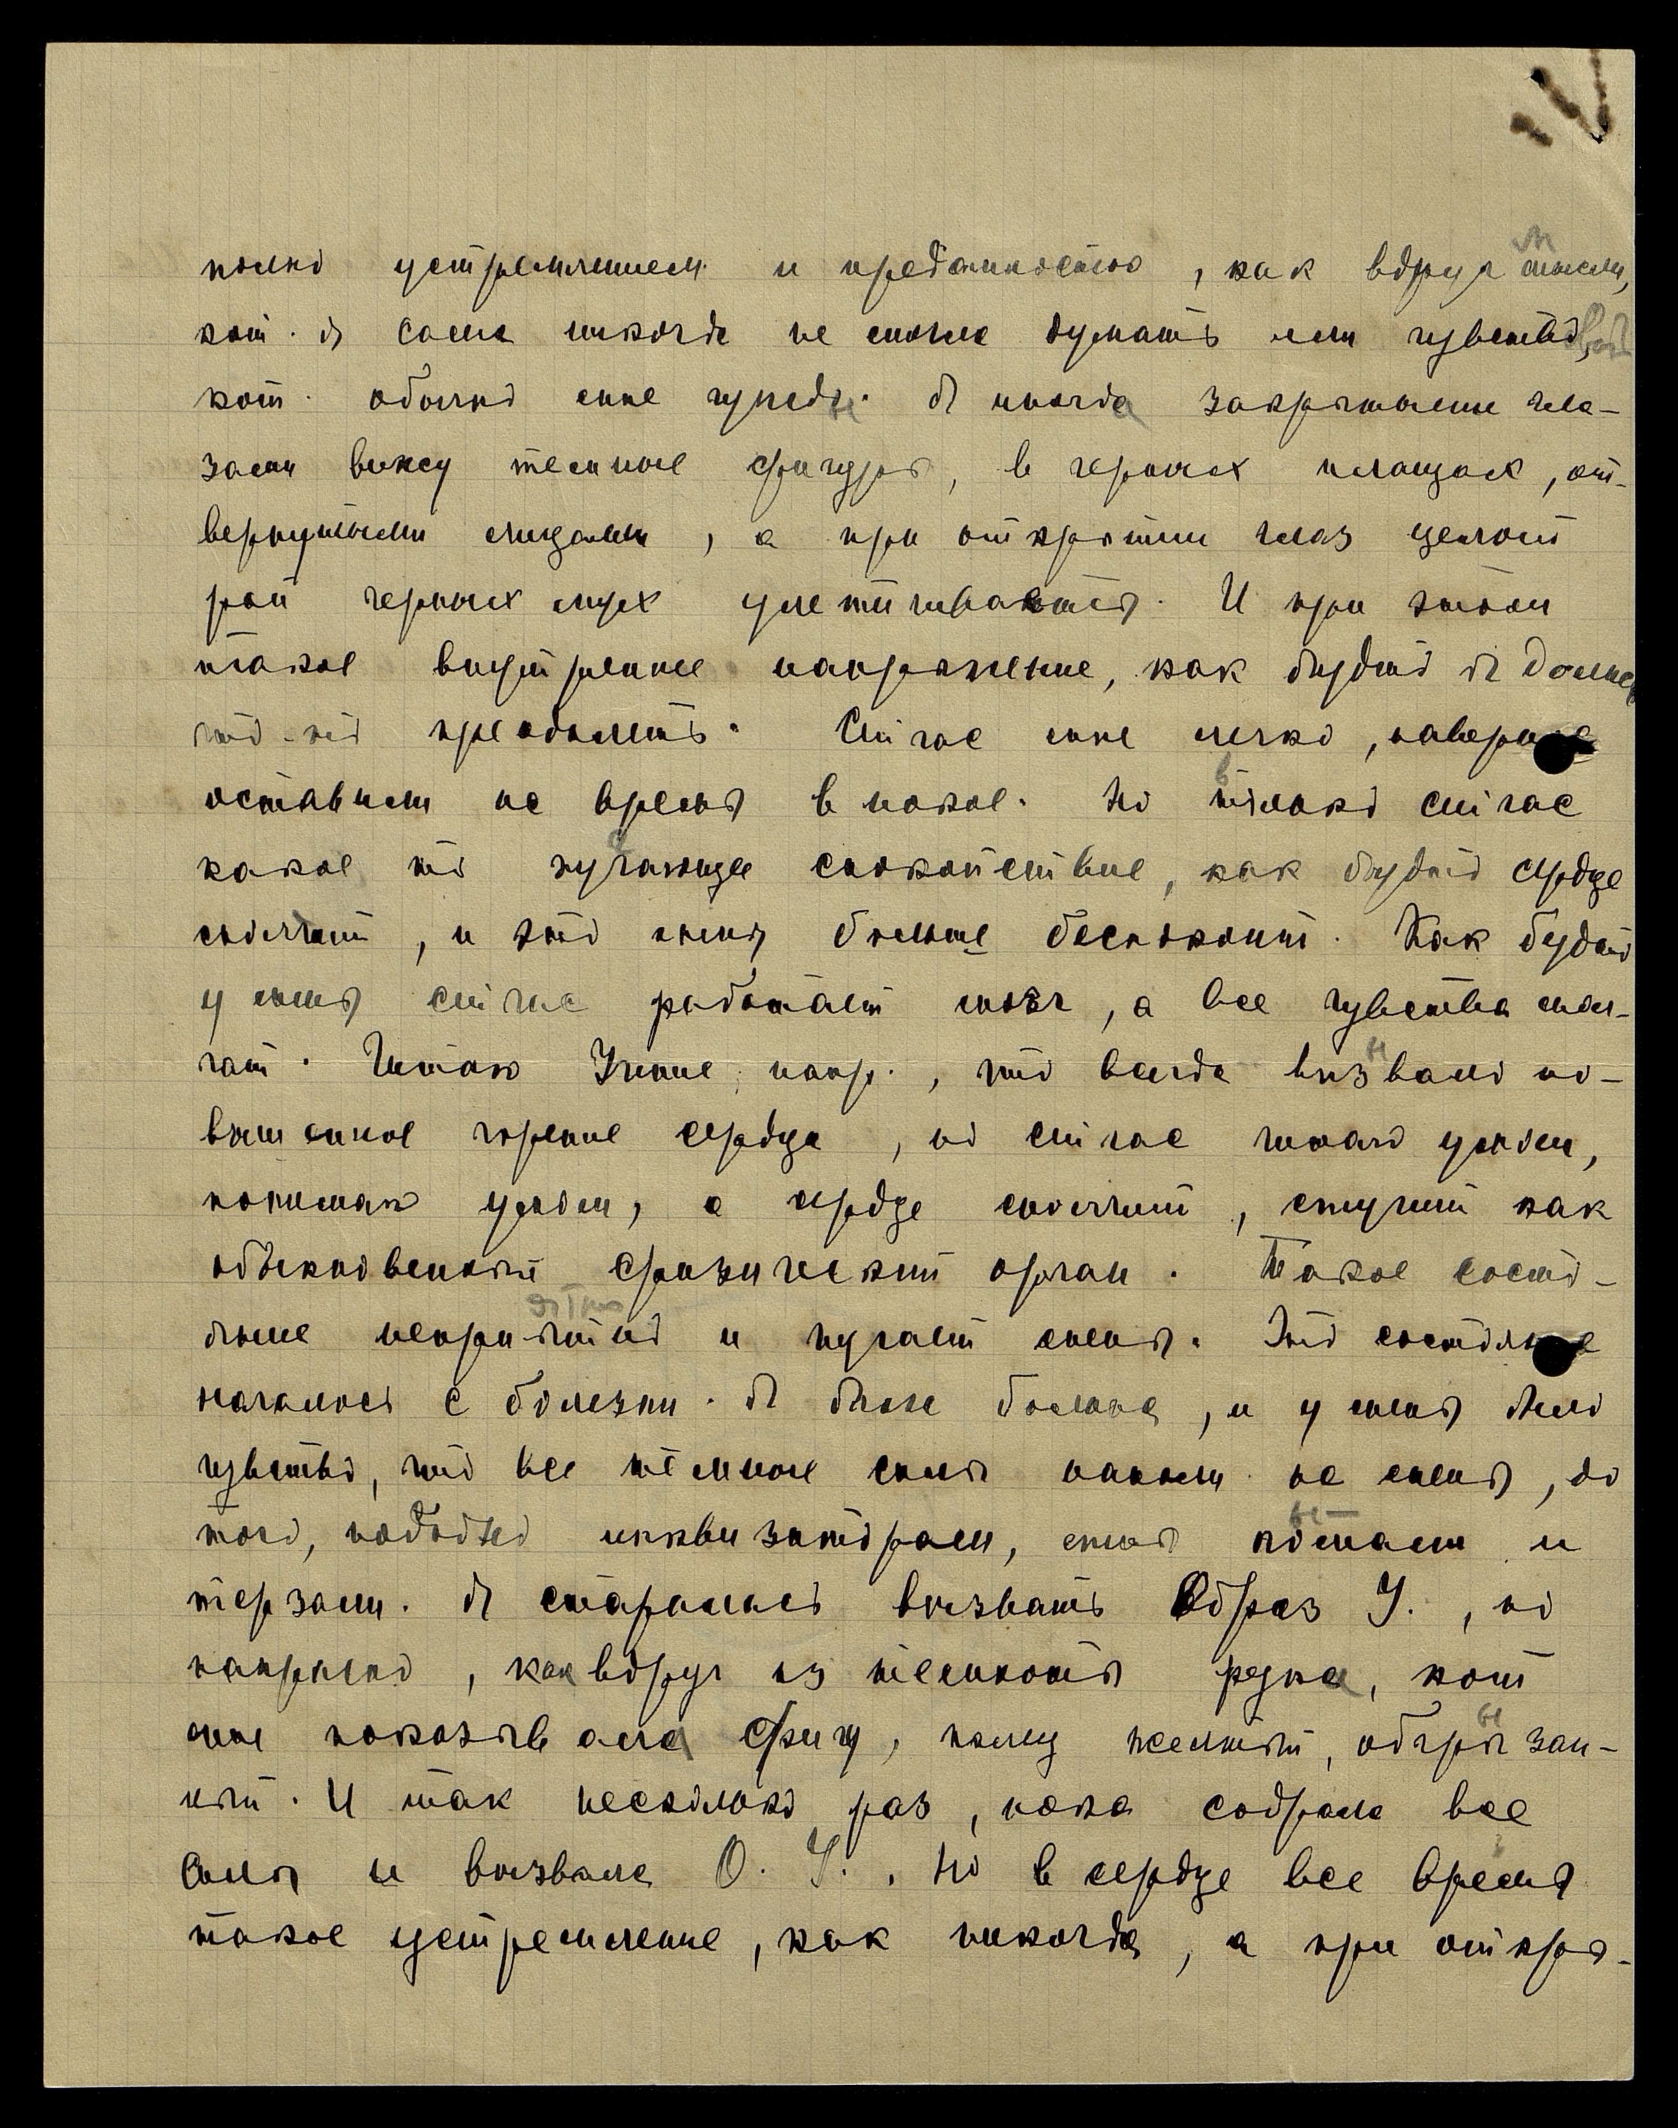 полно устремлением и преданностью, как вдруг мысли,
кот. я сама никогда не могла думать или чувство,
кот. обычно мне чужды. Я иногда закрытыми гла-
зами вижу темные фигуры, в черных плащах, от-
вернутыми лицами, а при открытии глаз целый
рой черных мух улетучивается. И при этом
такое внутреннее напряжение, как будто я должна
что-то преодолеть. Сейчас мне легко, наверное
оставили на время в покое. Но только сейчас
какое то пугающее спокойствие, как будто сердце
молчит, и это меня больше беспокоит. Как будто
у меня сейчас работает мозг, а все чувства мол-
чат. Читаю Учение, напр., что всегда вызвало по-
вышенное горение сердца, но сейчас читаю умом,
понимаю умом, а сердце молчит, стучит как
обыкновенный физический орган. Такое состо-
яние неприятно и пугает меня. Это состояние
началось с болезни. Я была больна, и у меня было
чувство, что все тёмные силы напали на меня, до
того, подобно инквизиторам, меня пытали и
терзали. Я старалась вызвать Образ У., но
напрасно, как вдруг из темноты рука, кот
мне показывала фигу, палец желтый, обгрызан-
ный. И так несколько раз, пока собрала все
силы и вызвала О. У.. Но в сердце все время
такое устремление, как никогда, а при откры-